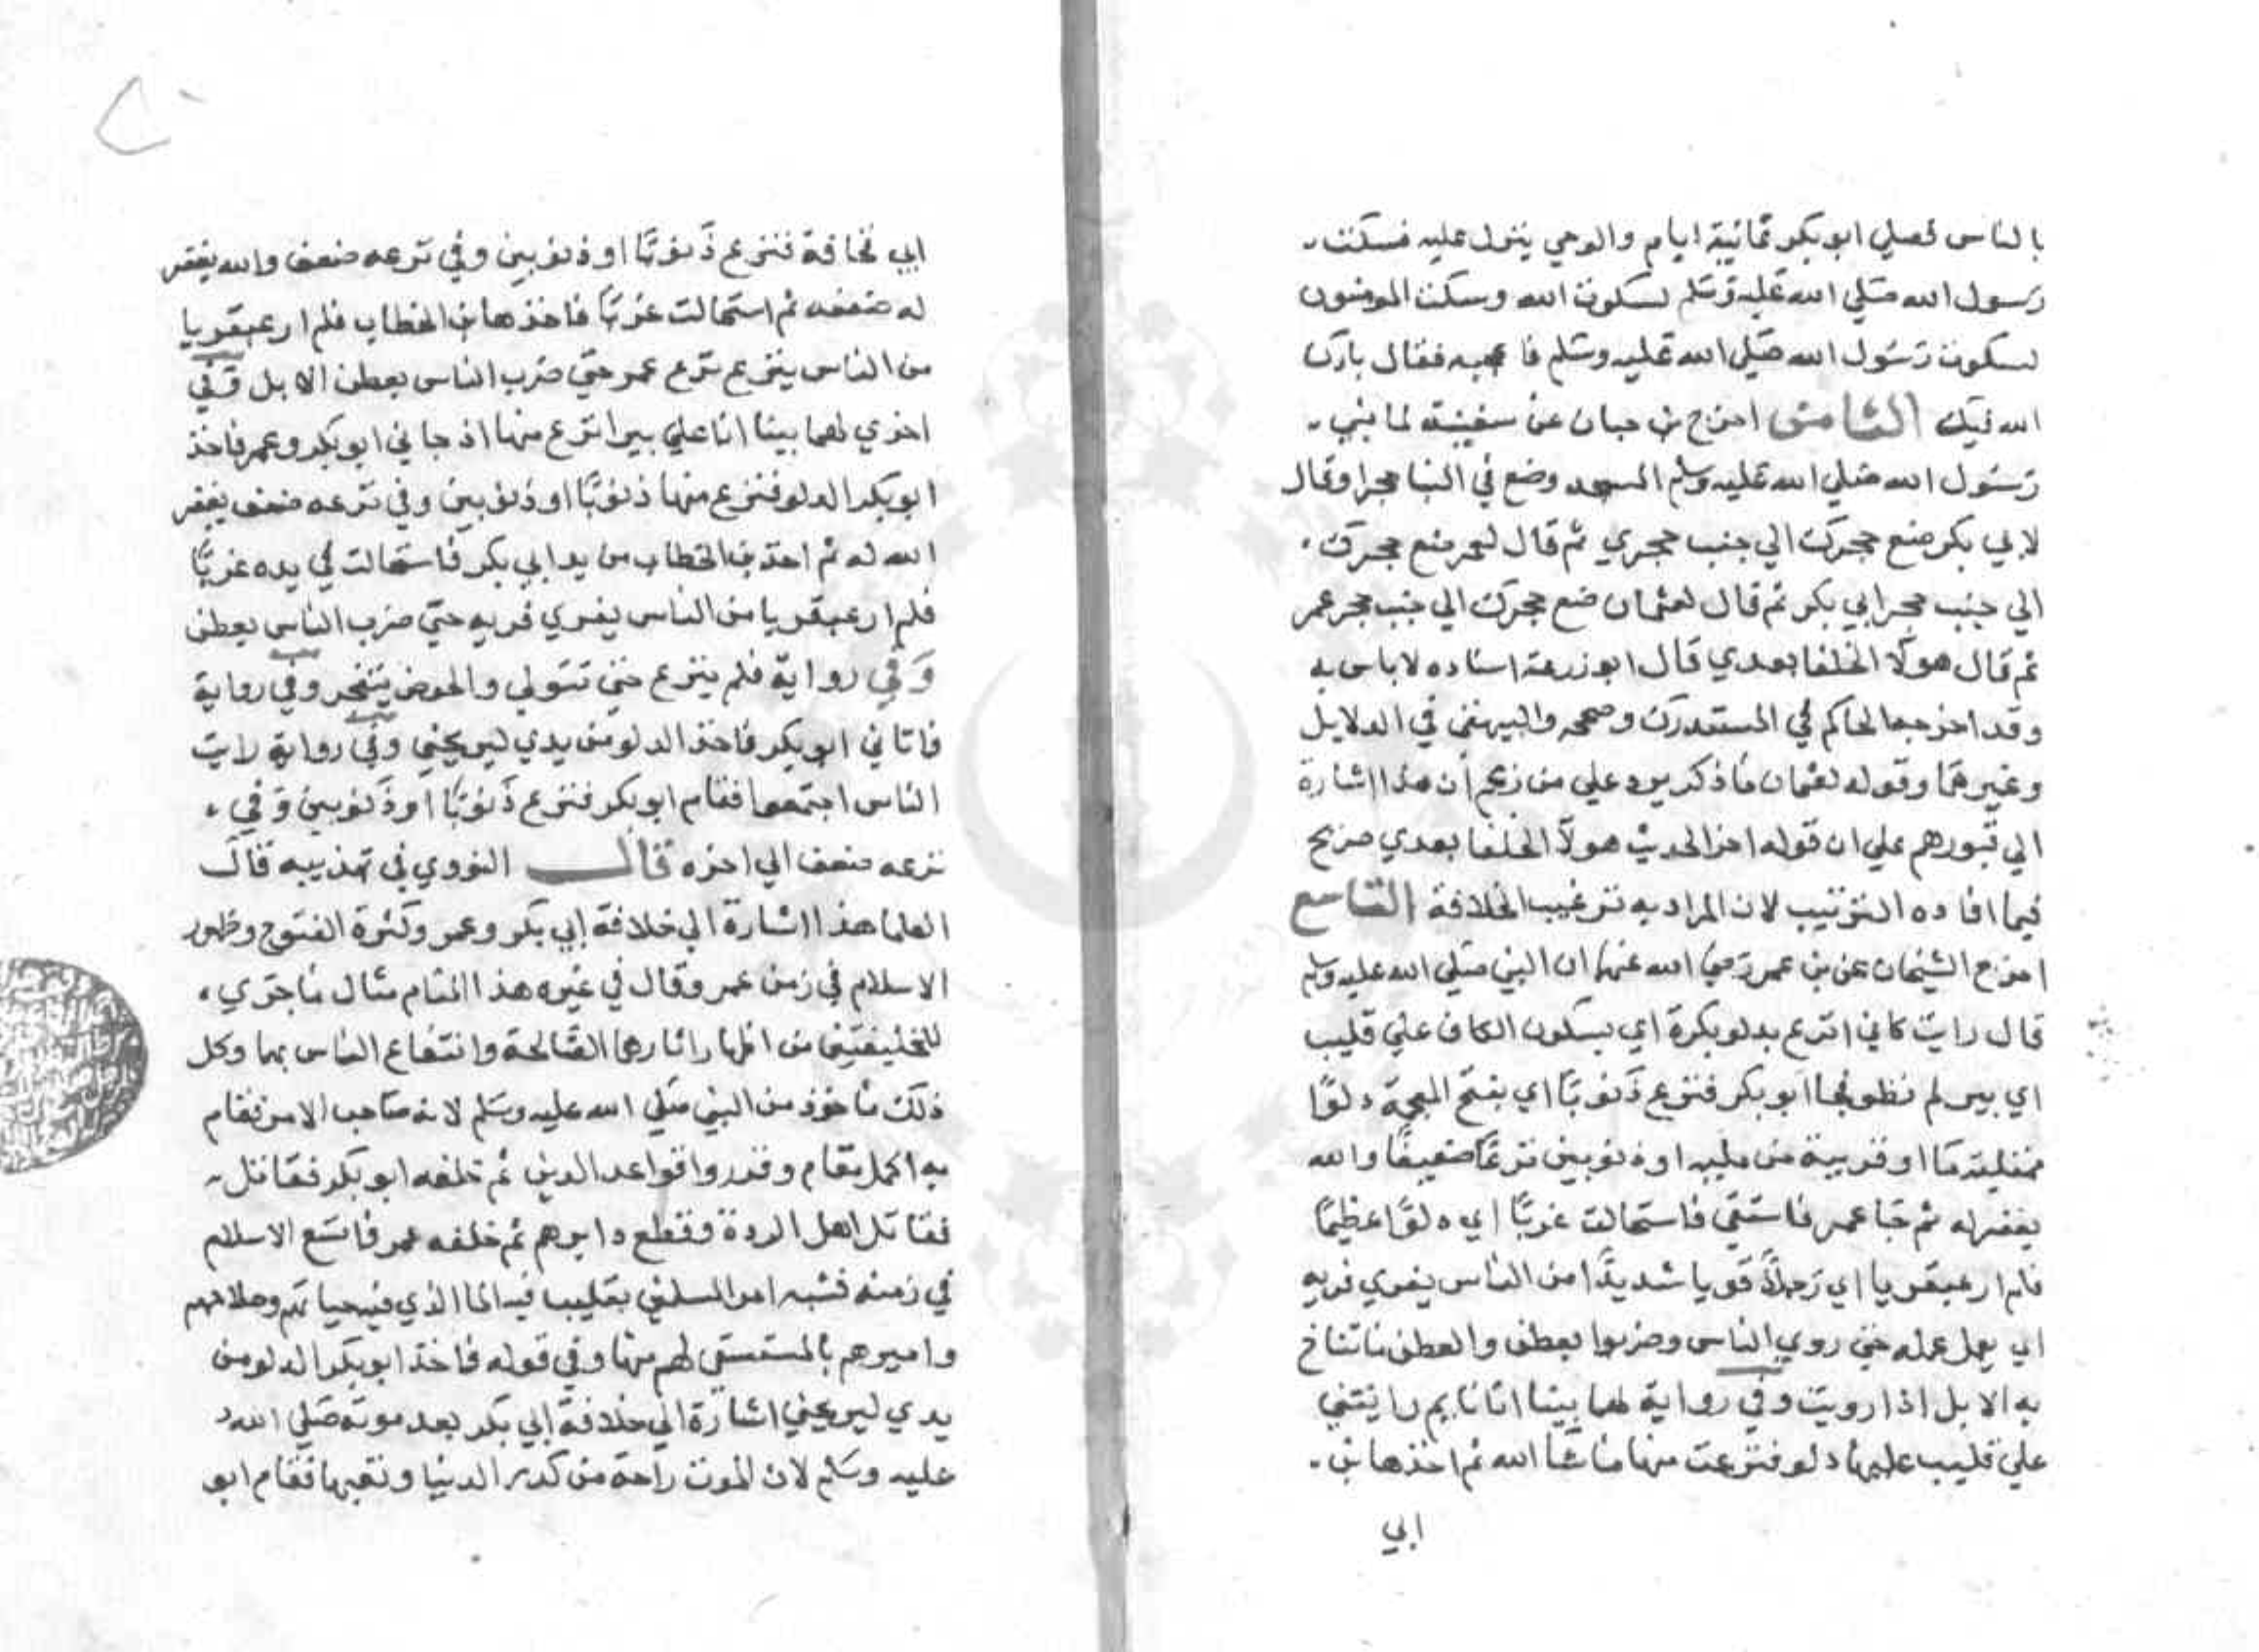 بالناس فصلي ابو بكر ثمانية ايام والوحي ينزل عليه فسكت
رسول الله صلي الله عليه وسلم لسكوت الله وسكت المومنون
لسكوت رسول الله صلي الله عليه وسلم فاعجبه فقال بارك
الله فيك الثامن اخرج بن حبان عن سفينة لما بني
رسول الله صلي الله عليه وسلم المسجد وضع في البنا حجرا وقال
لابي بكر ضع حجرك الي جنب حجري ثم قال لعمر ضع حجرك
الي جنب حجر ابي بكر ثم قال لعثمان ضع حجرك الي جنب حجر عمر
ثم قال هولا الخلفا بعدي قال ابو زرعة اسناده لا باس به
وقد اخرجه الحاكم في المستدرك وصححه والبيهقي في الدلايل
وغيرهما وقوله لعثمان ما ذكر يرد علي من زعم أن هذا اشارة
الي قبورهم علي ان قوله اخر الحديث هولا الخلفا بعدي صريح
فيما افاده الترتيب لان المراد به ترتيب الخلافة التاسع
اخرج الشيخان عن بن عمر رضي الله عنهما ان النبي صلي الله عليه وسلم
قال رايت كاني انزع بدلو بكرة اي بسكون الكاف علي قليب
اي بير لم تطو فجا ابو بكر فنزع ذنوبًا اي بفتح المعجمة دلوًا
ممتلية ما او قريبة من مليه او ذنوبين نزعًا ضعيفًا والله
يغفر له ثم جا عمر فاستقي فاستحالت غربًا اي دلوًا عظيمًا
فلم ار عبقريا اي رجلًا قويا شديدًا من الناس يفري فريه
اي يعمل عمله حتي روي الناس وضربوا بعطن والعطن ما تناخ
به الابل اذا رويت وفي رواية لهما بينا انا نايم رايتني
علي قليب عليها دلو فنزعت منها ما شا الله ثم اخذها بن
ابي
ابي قحافة فنزع ذَنوبًا او ذنوبين وفي نزعه ضعف والله يغفر
له ضعفه ثم استحالت غربًا فاخذها بن الخطاب فلم ار عبقريا
من الناس ينزع نزع عمر حتي ضرب الناس بعطن الابل وفي
اخري لهما بينا انا علي بير انزع منها اذ جاني ابو بكر وعمر فاخذ
ابو بكر الدلو فنزع منها ذنوبًا او ذنوبين وفي نزعه ضعف يغفر
الله له ثم اخذ بن الخطاب من يد ابي بكر فاستحالت في يده غربًا
فلم ار عبقريا من الناس يفري فريه حتي ضرب الناس بعطن
وَفي رواية فلم ينزع حتي تولي والحوض يتفجر وفي رواية
فاتاني ابو بكر فاخذ الدلو من يدي ليريحني وفي رواية رايت
الناس اجتمعوا فقام ابو بكر فنزع ذَنوبًا او ذَنوبين وَفي
نزعه ضعف الي اخره قال النووي في تهذيبه قال
العلما هذا اشارة الي خلافة ابي بكر وعمر وكثرة الفتوح وظهور
الاسلام في زمن عمر وقال في غيره هذا المنام مثال ما جري
للخليفتين من اظهار اثارهما الصالحة وانتفاع الناس بهما وكل
ذلك ماخوذ من النبي صلي الله عليه وسلم لانه صاحب الامر فقام
به اكمل مقام وقرر قواعد الدين ثم خلفه ابو بكر فقاتل
فقاتل اهل الردة وقطع دابرهم ثم خلفه عمر فاتسع الاسلام
في زمنه فشبه امر المسلمين بقليب فيه الما الذي فيه حياتهم وصلاحهم
واميرهم بالمستسقي لهم منها وفي قوله فاخذ ابو بكر الدلو من
يدي ليريحني اشارة الي خلافة ابي بكر بعد موته صلي الله
عليه وسلم لان الموت راحة من كدر الدنيا وتعبها فقام ابو